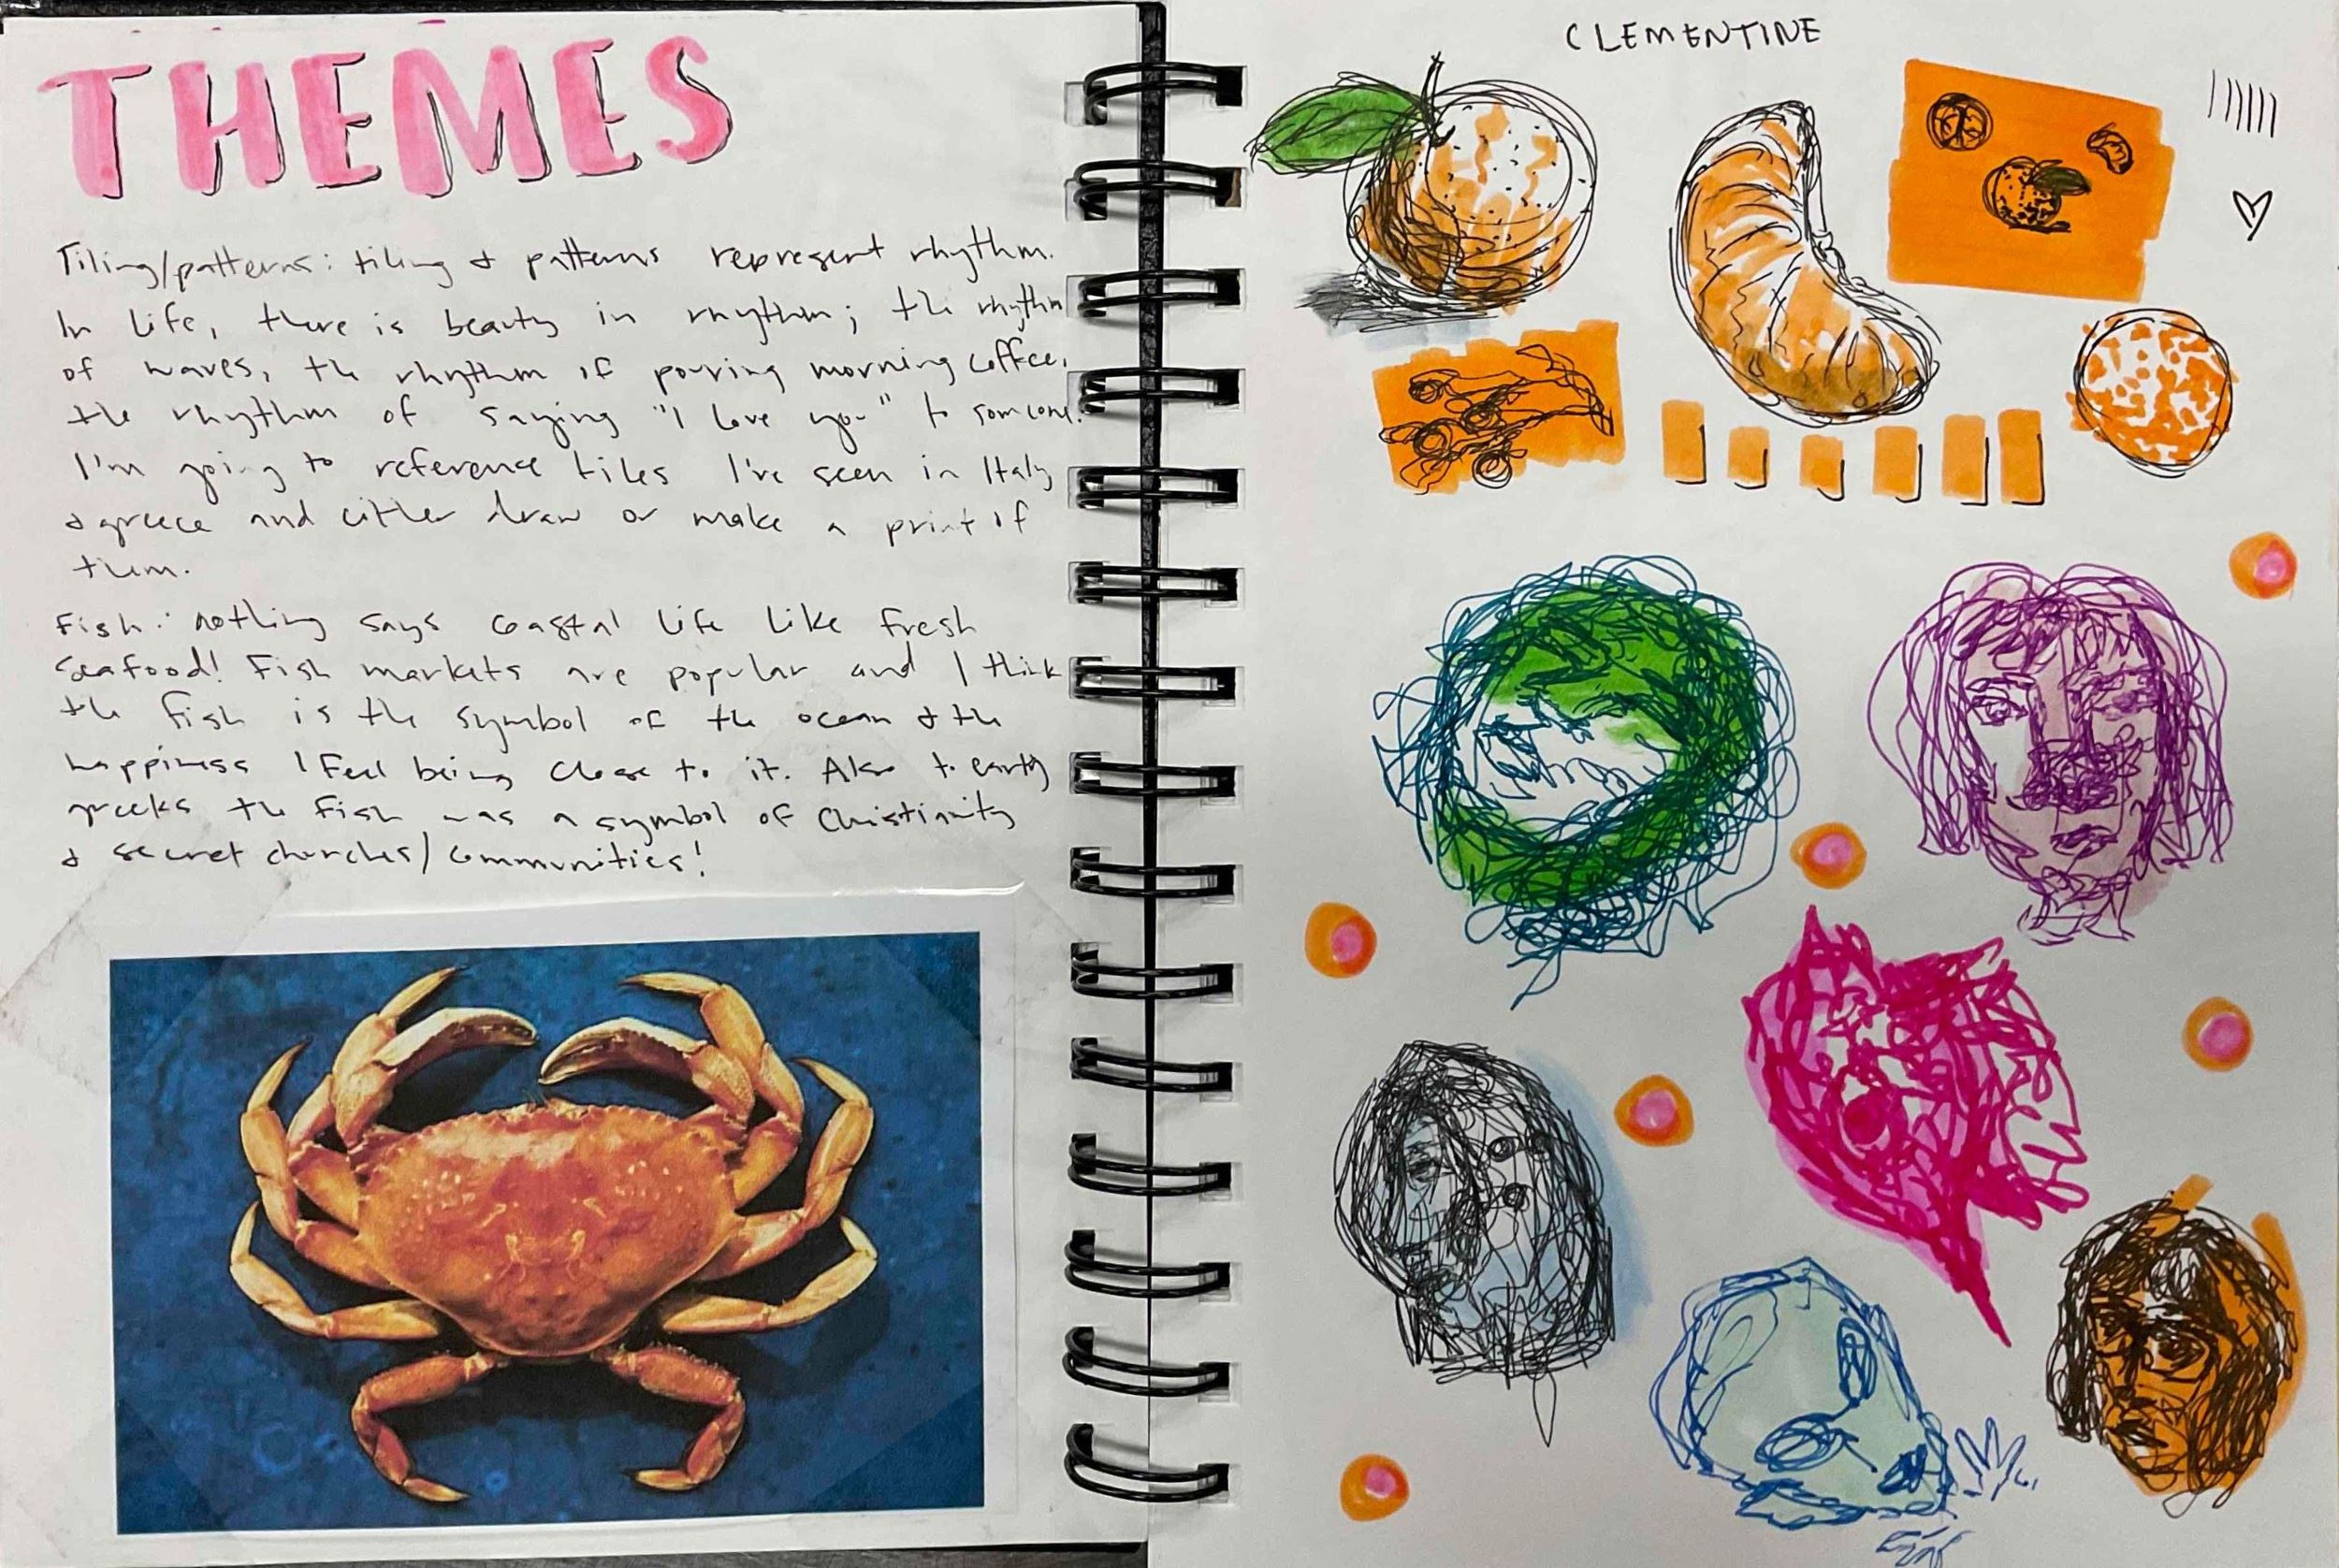 THEMES
Tiling/patterns: tiling & patterns represent rhythm.
In life, there is beauty in rhythm; the rhythm
of waves, the rhythm of pouring morning coffee,
the rhythm of saying "I love you" to someone.
I'm going to reference tiles I've seen in Italy
& greece and either draw or make a print of
them.
Fish: nothing says coastal life like fresh
seafood! Fish markets are popular and I think
the fish is the symbol of the ocean & the
happiness I feel being close to it. Also to early
greeks the fish was a symbol of Christianity
& secret churches/communities!
CLEMENTINE